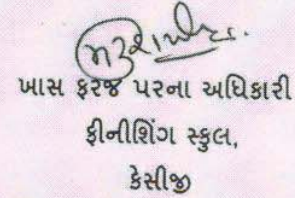 ખાસ ફરજ પરના અધિકારી
ફીનીશિંગ સ્કુલ,
કેસીજી